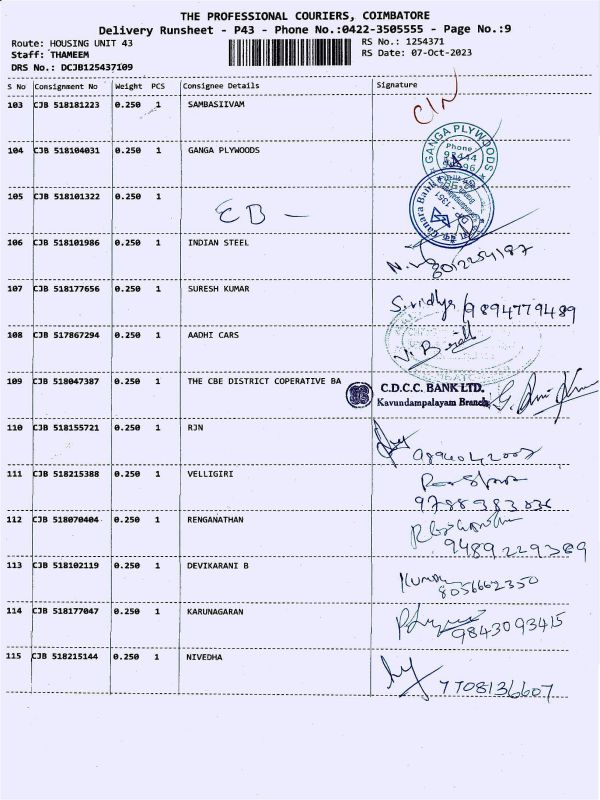 THE PROFESSIONAL COURIERS, COIMBATORE
Delivery Runsheet - P43 - Phone No.:0422-3505555 - Page No.:9
Route: HOUSING UNIT 43 RS No.: 1254371
Staff: THAMEEM RS Date: 07-Oct-2023
DRS No.: DCJB125437109
S No Consignment No Weight PCS Consignee Details Signature
103 CJB 518181223 0.250 1 SAMBASIIVAM
104 CJB 518104031 0.250 1 GANGA PLYWOODS GANGA PLYWOODS
Phone
105 CJB 518101322 0.250 1 EB - Canara Bank
106 CJB 518101986 0.250 1 INDIAN STEEL
107 CJB 518177656 0.250 1 SURESH KUMAR 9894779489
108 CJB 517867294 0.250 1 AADHI CARS
109 CJB 518047387 0.250 1 THE CBE DISTRICT COPERATIVE BA C.D.C.C. BANK LTD.
Kavundampalayam Branch
110 CJB 518155721 0.250 1 RJN
111 CJB 518215388 0.250 1 VELLIGIRI
9788383036
112 CJB 518070404 0.250 1 RENGANATHAN
9489229389
113 CJB 518102119 0.250 1 DEVIKARANI B
8056662350
114 CJB 518177047 0.250 1 KARUNAGARAN
9843093415
115 CJB 518215144 0.250 1 NIVEDHA
7708136607